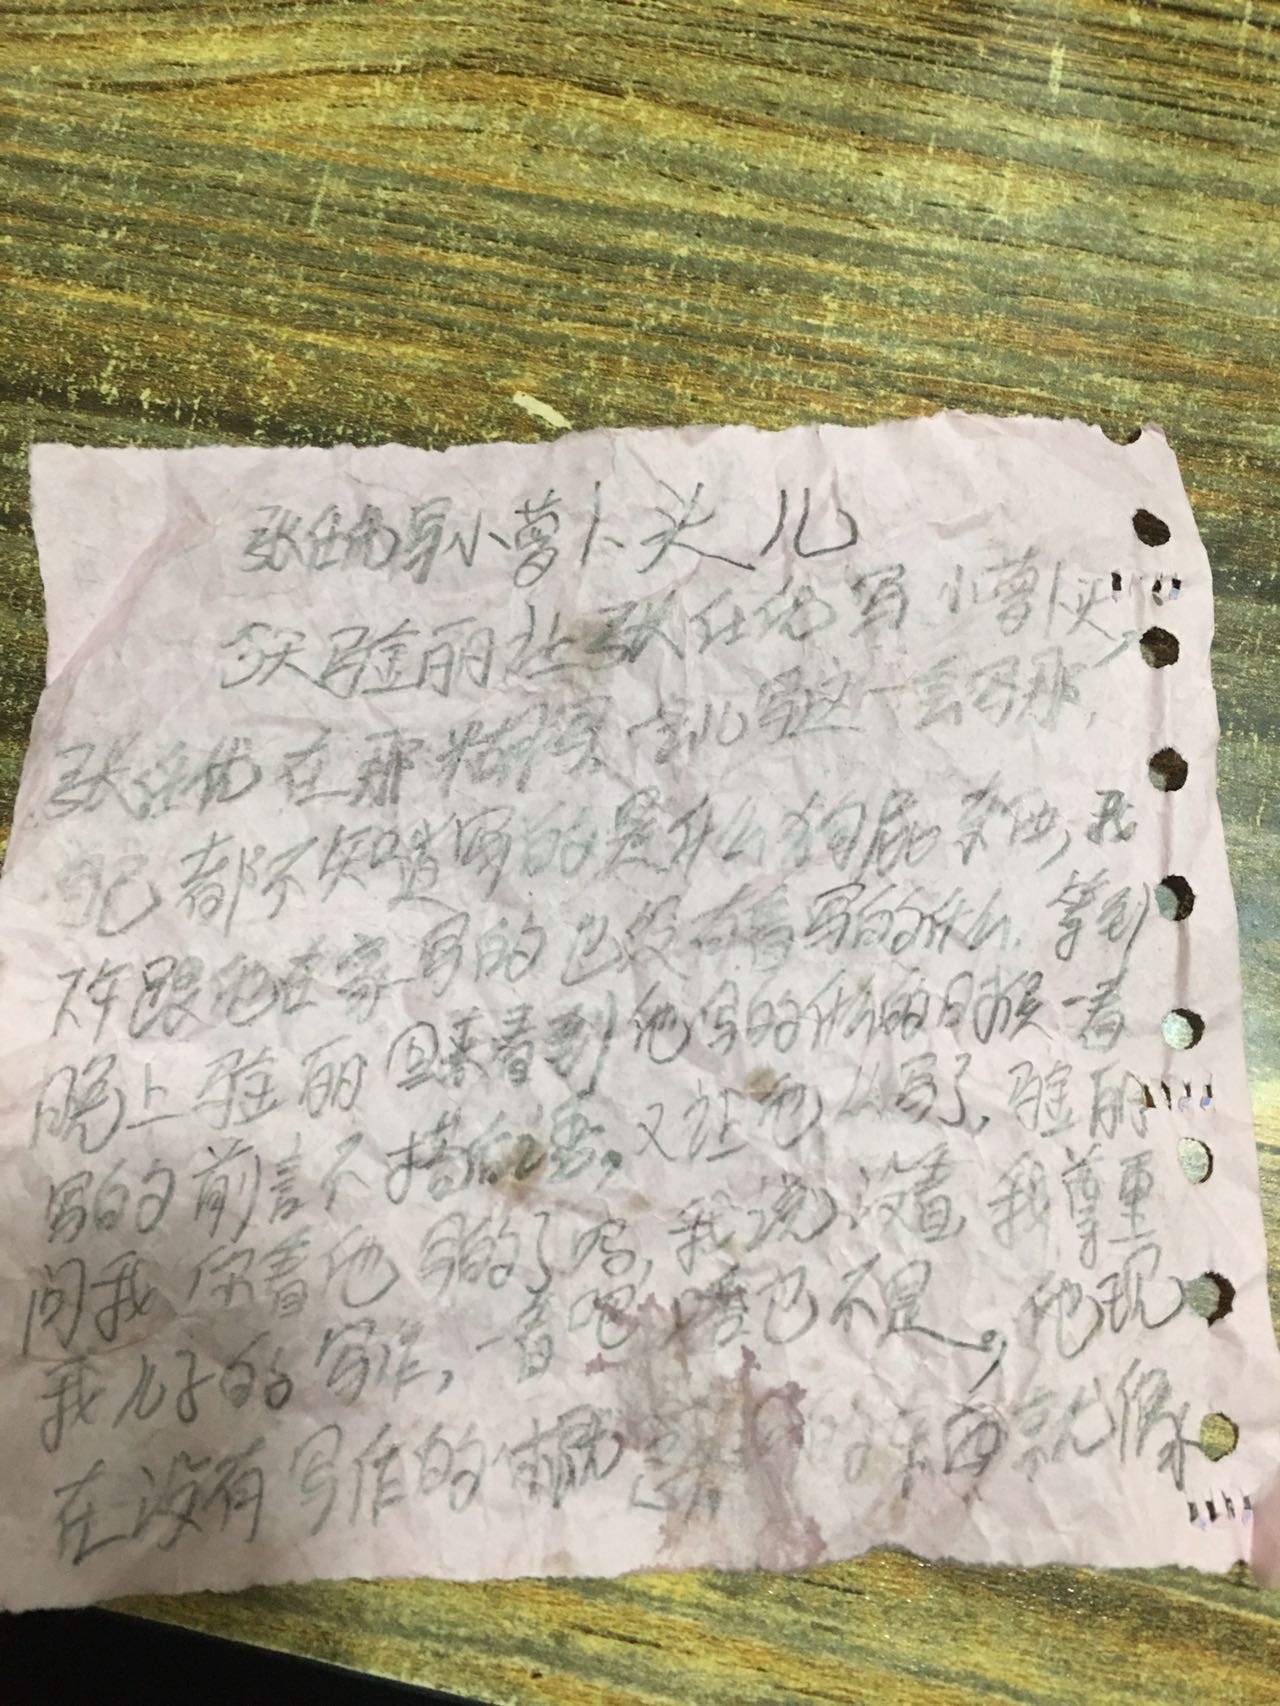 张任优写小萝卜头儿
今天骎丽让张任优写小萝卜头,
张任优在那糊写一会儿写这一会写那,
自己都不知道写的是什么狗屁东西,我
下午跟他在家写的也没有看写的什么.等到
晚上骎丽回来看到他写的什么的时候一看
写的前言不搭后语,又让他么写了,骎丽
问我你看他写的了吗,我说没看我尊重
我儿子的写作,一看吧啥也不是。,他现
在没有写作的概念,写的东西就像